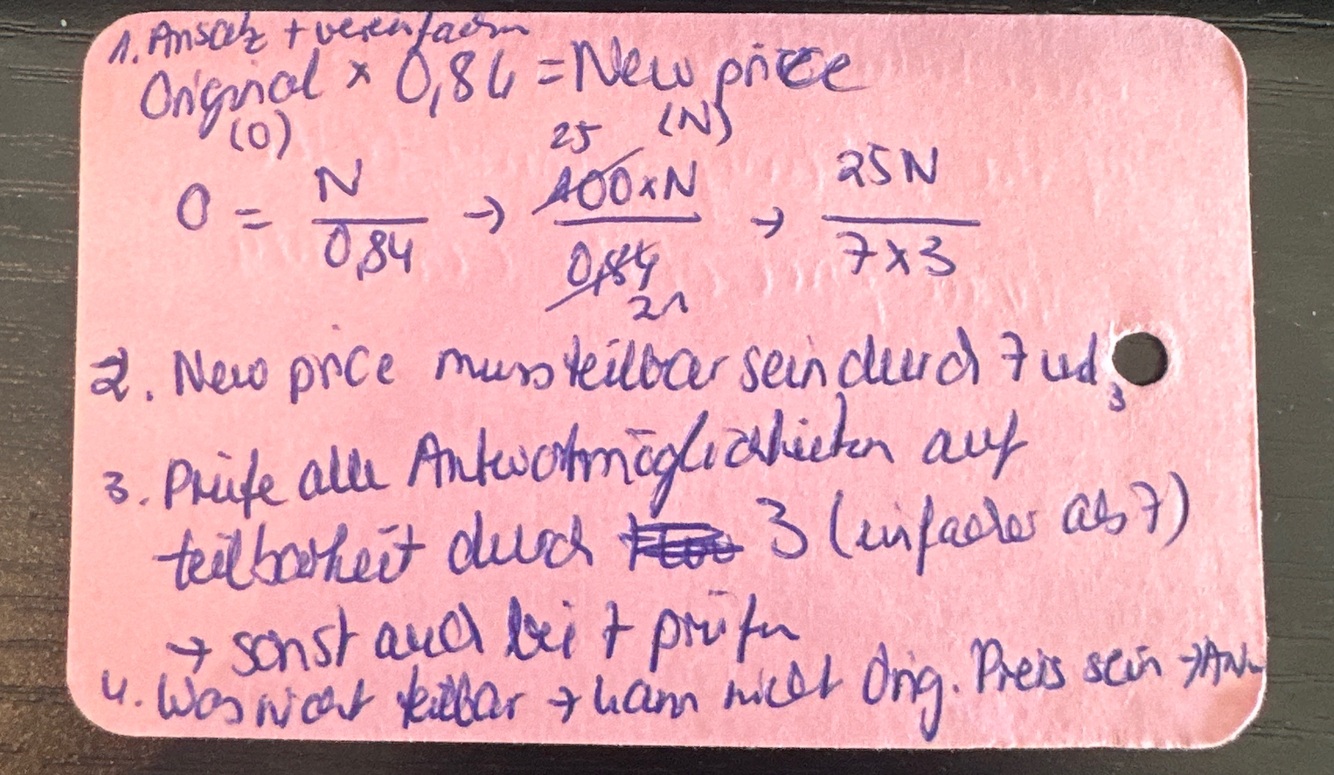 1. Ansatz + vereinfachn
Original × 0,84 = New price
(O) (N)
25
O = N / 0,84 → 100×N / 0,84 → 25N / 7×3
21
2. New price muss teilbar sein durch 7 ud 3
3. Prüfe alle Antwortmöglichkieten auf
teilbarheit durch 3 (einfacher als 7)
→ sonst auch bei 7 prüfn
4. Was nicht teilbar → kann nicht Orig. Preis sein →